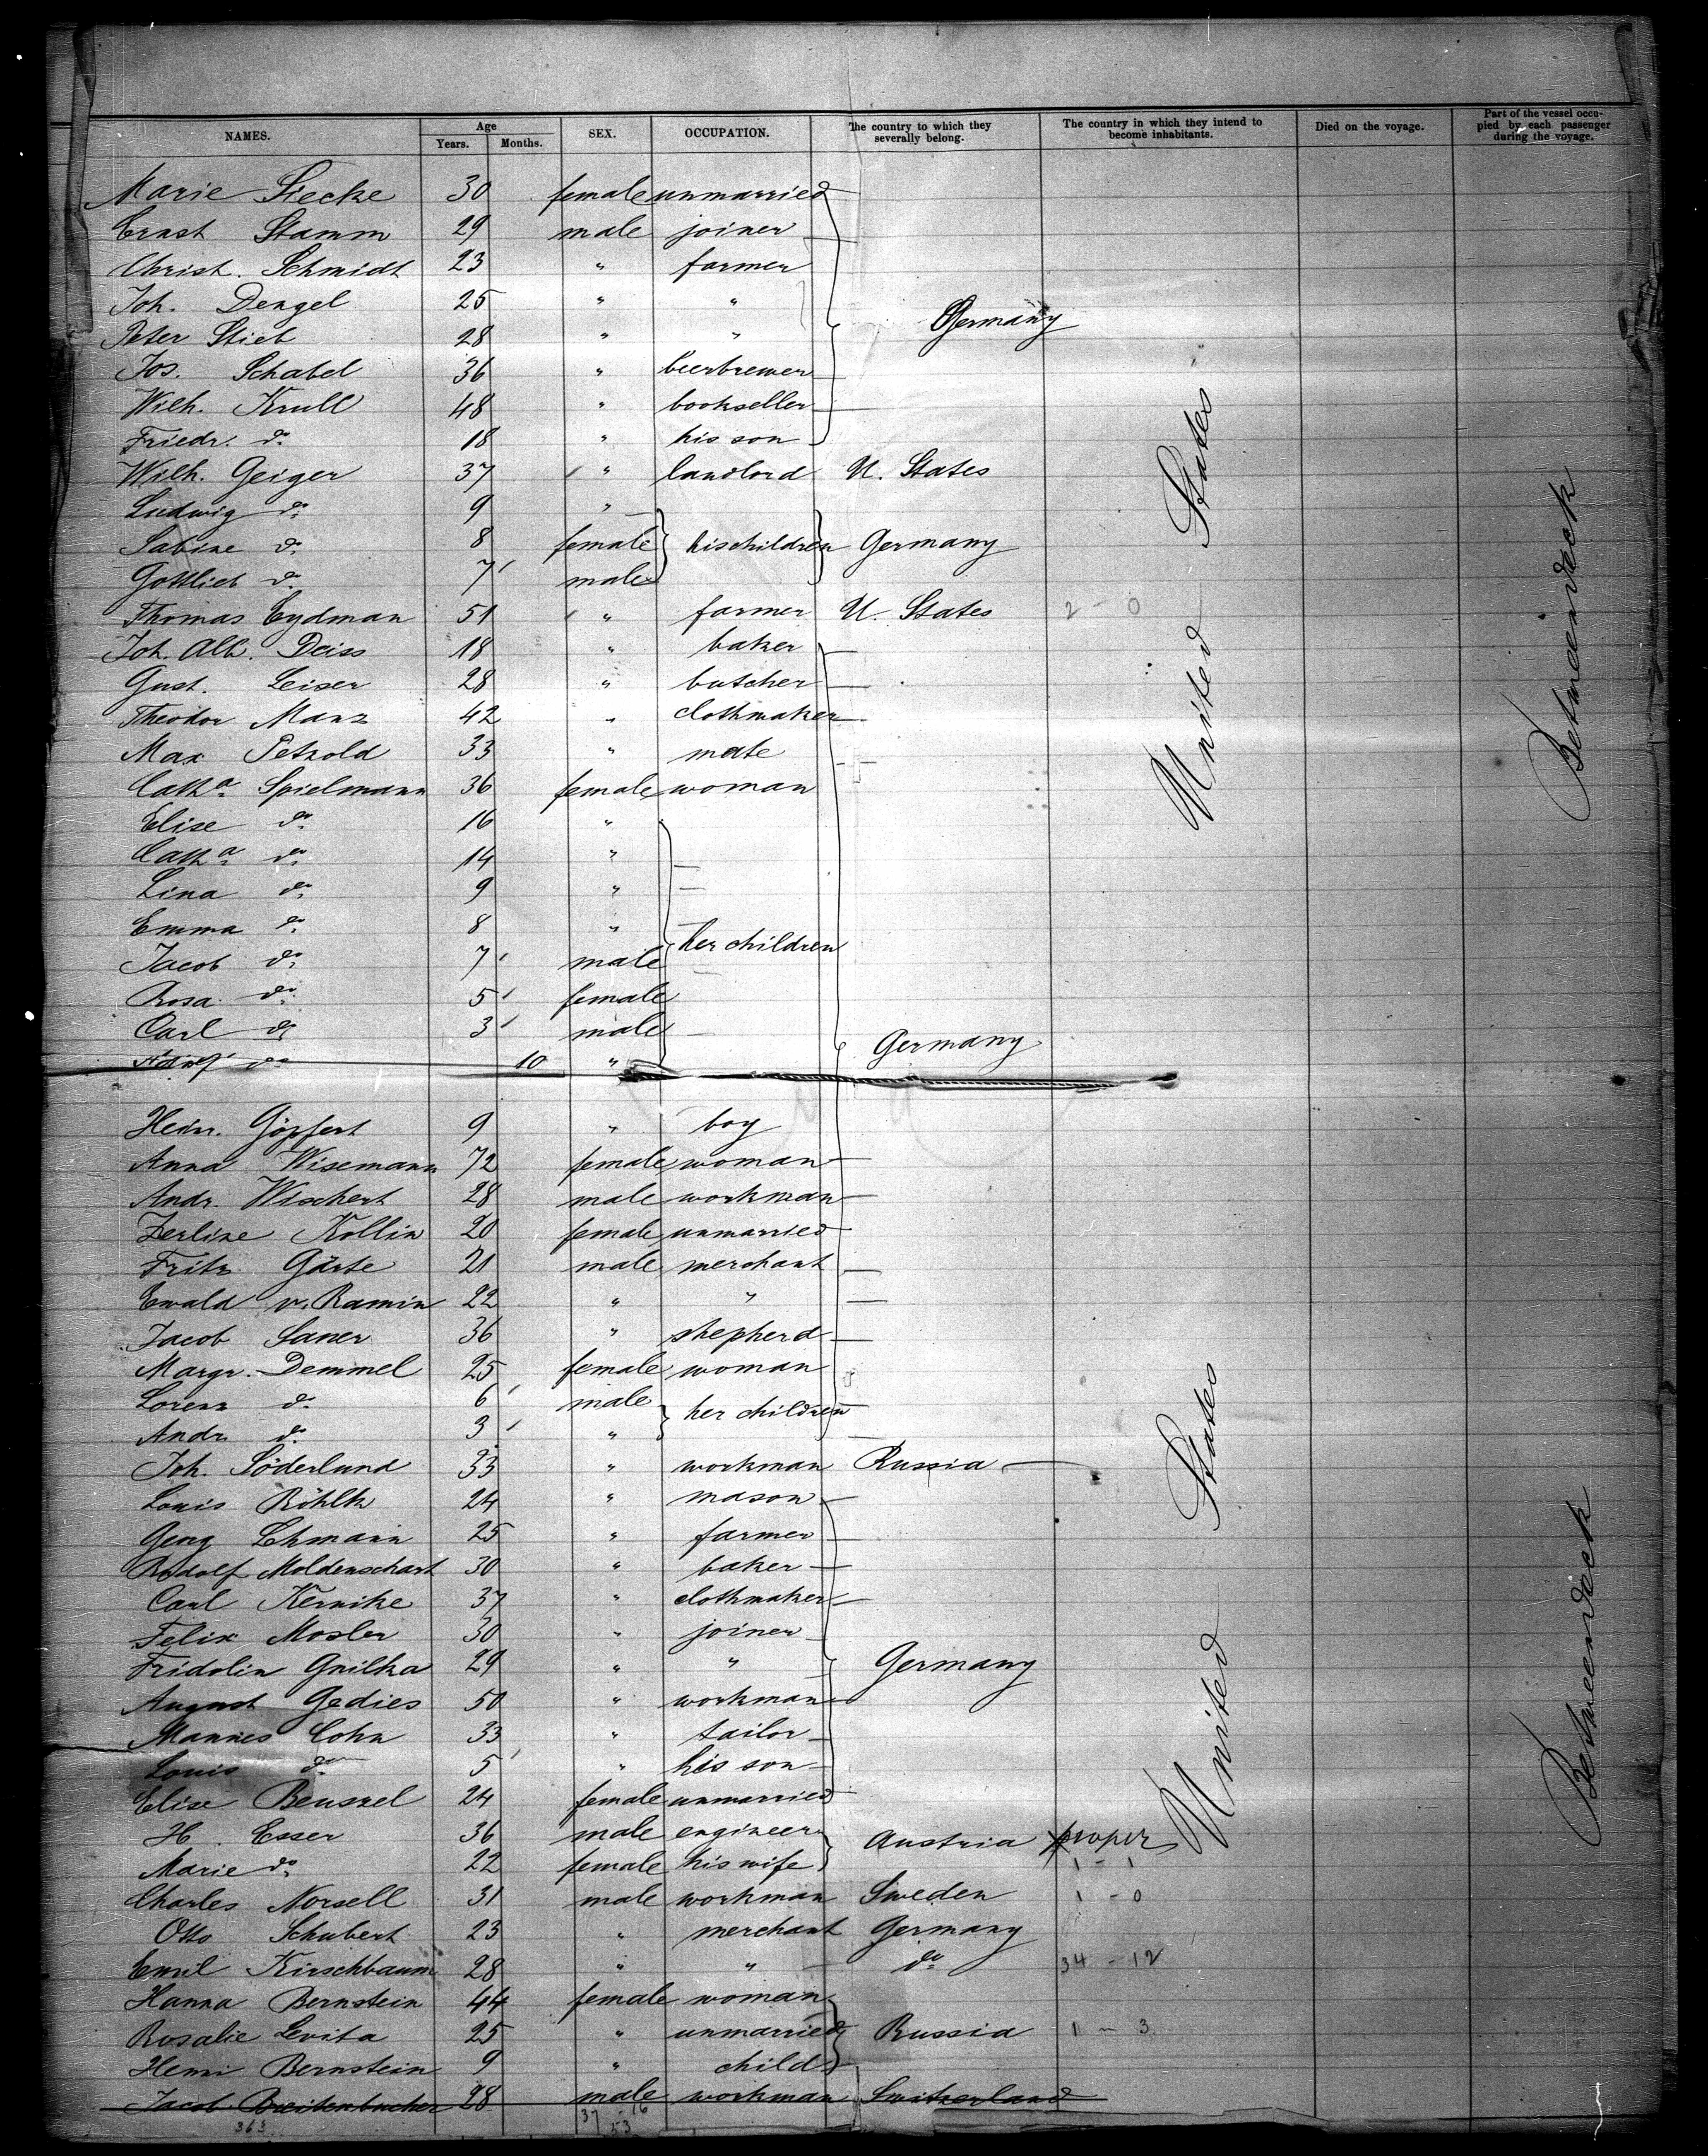 NAMES. Age Years. Months. SEX. OCCUPATION. The country to which they severally belong. The country in which they intend to become inhabitants. Died on the voyage. Part of the vessel occupied by each passenger during the voyage.
Marie Siecke 30 female unmarried
Ernst Stamm 29 male joiner
Christ. Schmidt 23 " farmer
Joh. Dengel 25 " "
Germany
Peter Stieb 28 " "
Jos. Schabel 36 " beerbrewer
Wilh. Krull 48 " bookseller
Friedr. do 18 " his son
Wilh. Geiger 37 " landlord U. States
Ludwig do 9 "
Sabine do 8 female his children Germany
Gottlieb do 7 male
Thomas Eydman 51 " farmer U. States 2 - 0
Joh. Alb. Deiss 18 " baker
Gust. Leiser 28 " butcher
Theodor Manz 42 " clothmaker
Max Petzold 33 " mate
United States
Betweendeck
Catha Spielmann 36 female woman
Elise do 16 "
Catha do 14 "
Lina do 9 "
Emma do 8 "
her children
Jacob do 7 male
Rosa do 5 female
Carl do 3 male
Germany
Adolf do 10 "
Heinr. Göpfert 9 " boy
Anna Wisemann 72 female woman
Andr. Wischert 28 male workman
Zerline Kollin 20 female unmarried
Fritz Gärte 21 male merchant
Ewald v. Ramin 22 " "
Jacob Saner 36 " shepherd
Margr. Demmel 25 female woman
Lorenz do 6 male her children
Andr. do 3 "
Joh. Söderlund 33 " workman Russia
Louis Röhlk 24 " mason
Georg Lehmann 25 " farmer
Rudolf Moldenschart 30 " baker
Carl Kernike 37 " clothmaker
Felix Mosler 30 " joiner
Fridolin Gnilka 29 " " Germany
August Gedies 50 " workman
United States
Betweendeck
Mannes Cohn 33 " tailor
Louis do 5 " his son
Elise Benszel 24 female unmarried
H. Esser 36 male engineer Austria proper
Marie do 22 female his wife 1 - 1
Charles Norsell 31 male workman Sweden 1 - 0
Otto Schubert 23 " merchant Germany
Emil Kirschbaum 28 " " do 34 - 12
Hanna Bernstein 44 female woman
Rosalie Levita 25 " unmarried Russia 1 - 3
Henri Bernstein 9 " child
Jacob Breitenbucher 28 male workman Switzerland
363 37 - 16
53